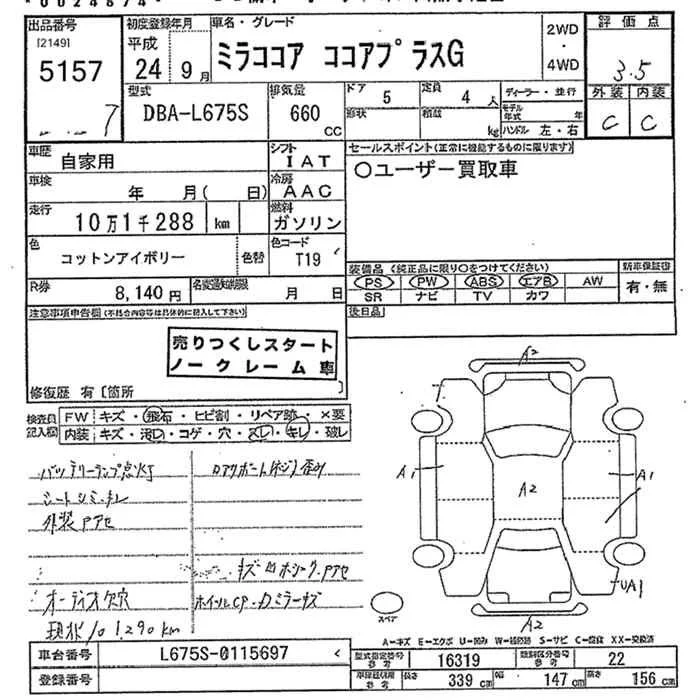 出品番号 初度登録年月 車名・グレード 評価点
[2149] 平成 2WD
5157 24 9月 ミラココア ココアプラスG ・ 3.5
4WD
型式 排気量 ドア 5 定員 4人 ディーラー・並行 外装 内装
7 DBA-L675S 660 形状 積載 モデル年式 年 C C
CC kg ハンドル 左・右
車歴 自家用 シフト IAT セールスポイント(正常に機能するものに限ります)
車検 年 月( 日) 冷房 AAC ○ユーザー買取車
走行 10万1千288 km 燃料 ガソリン
色 コットンアイボリー 色替 色コード T19
装備品 (純正品に限り○をつけてください) 新車保証書
R券 8,140円 名変期限 月 日 PS PW ABS エアB AW 有・無
SR ナビ TV カワ
注意事項申告欄(不具合内容等は具体的に記入して下さい) 後日品
売りつくしスタート
ノークレーム車
修復歴 有〔箇所
検査員 FW キズ・飛石・ヒビ割・リペア跡・×要
記入欄 内装 キズ・汚レ・コゲ・穴・スレ・キレ・破レ
バッテリーランプ点灯 Dアウ
シートシミ・キレ
外装アセ
オーディオ欠
ホイールCP・Dミラーキズ
現状101,290km
A2
A1 A2 A1
UA1
スペア A2
A-キズ E-エクボ U-凹み W-補修跡 S-サビ C-腐食 XX-交換済
車台番号 L675S-0115697 型式指定番号 参考 16319 類別区分番号 参考 22
登録番号 参考 長さ 339cm 幅 147cm 高さ 156cm